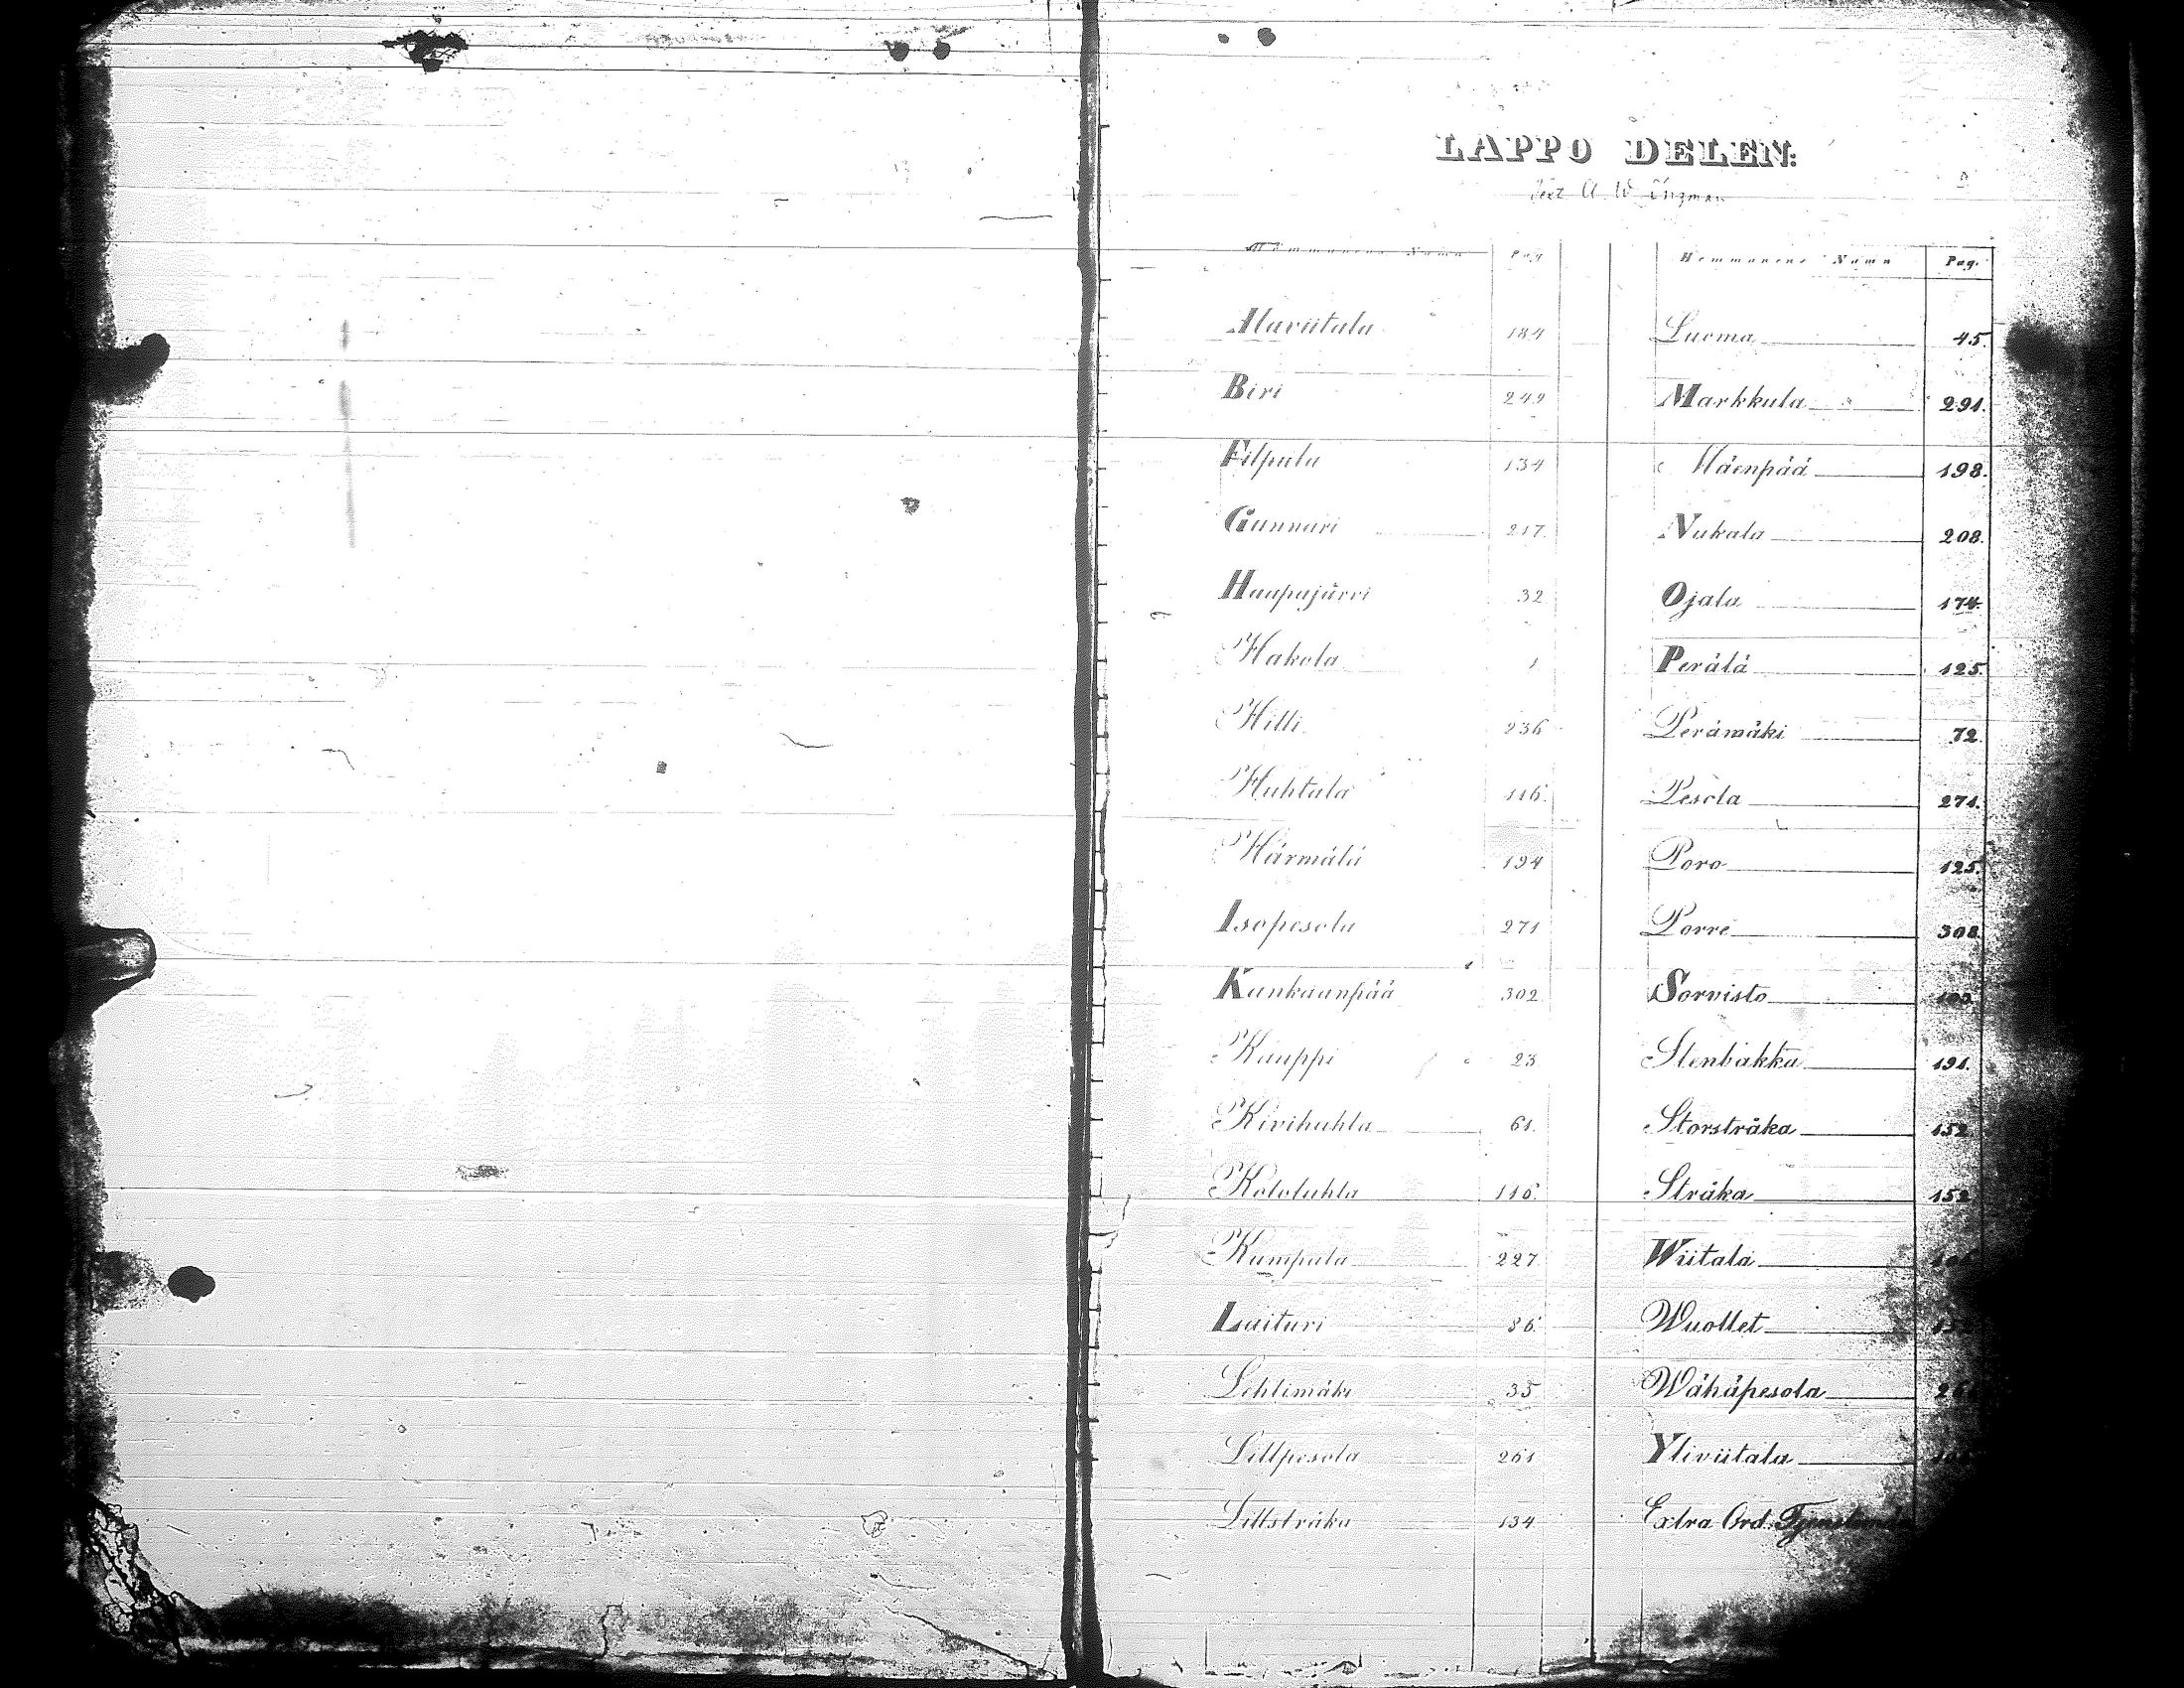 LAPPO DELEN:
Text A. W. Öhgman
Hemmanens Namn Pag.
Alaviitala 184
Biri 249
Filpula 134
Gunnari 217.
Haapajärvi 32
Hakola 1
Hilli 236
Huhtala 116.
Härmälä 194
Isopesola 271
Kankaanpää 302
Kauppi 23
Kivihuhta 61.
Kololuhta 116.
Kumpula 227.
Laituri 86.
Lehtimäki 35
Lillpesola 261
Lillstråka 134
Hemmanens Namn Pag.
Luoma 45.
Markkula 291.
Mäenpää 198.
Nukala 208.
Ojala 174.
Perälä 125.
Perämäki 72.
Pesola 271.
Poro 125.
Porre 308.
Sorvisto
Stenbakka 191.
Storstråka 152.
Stråka 152
Wiitala
Wuollet
Wähäpesola
Yliviitala
Extra Ord.